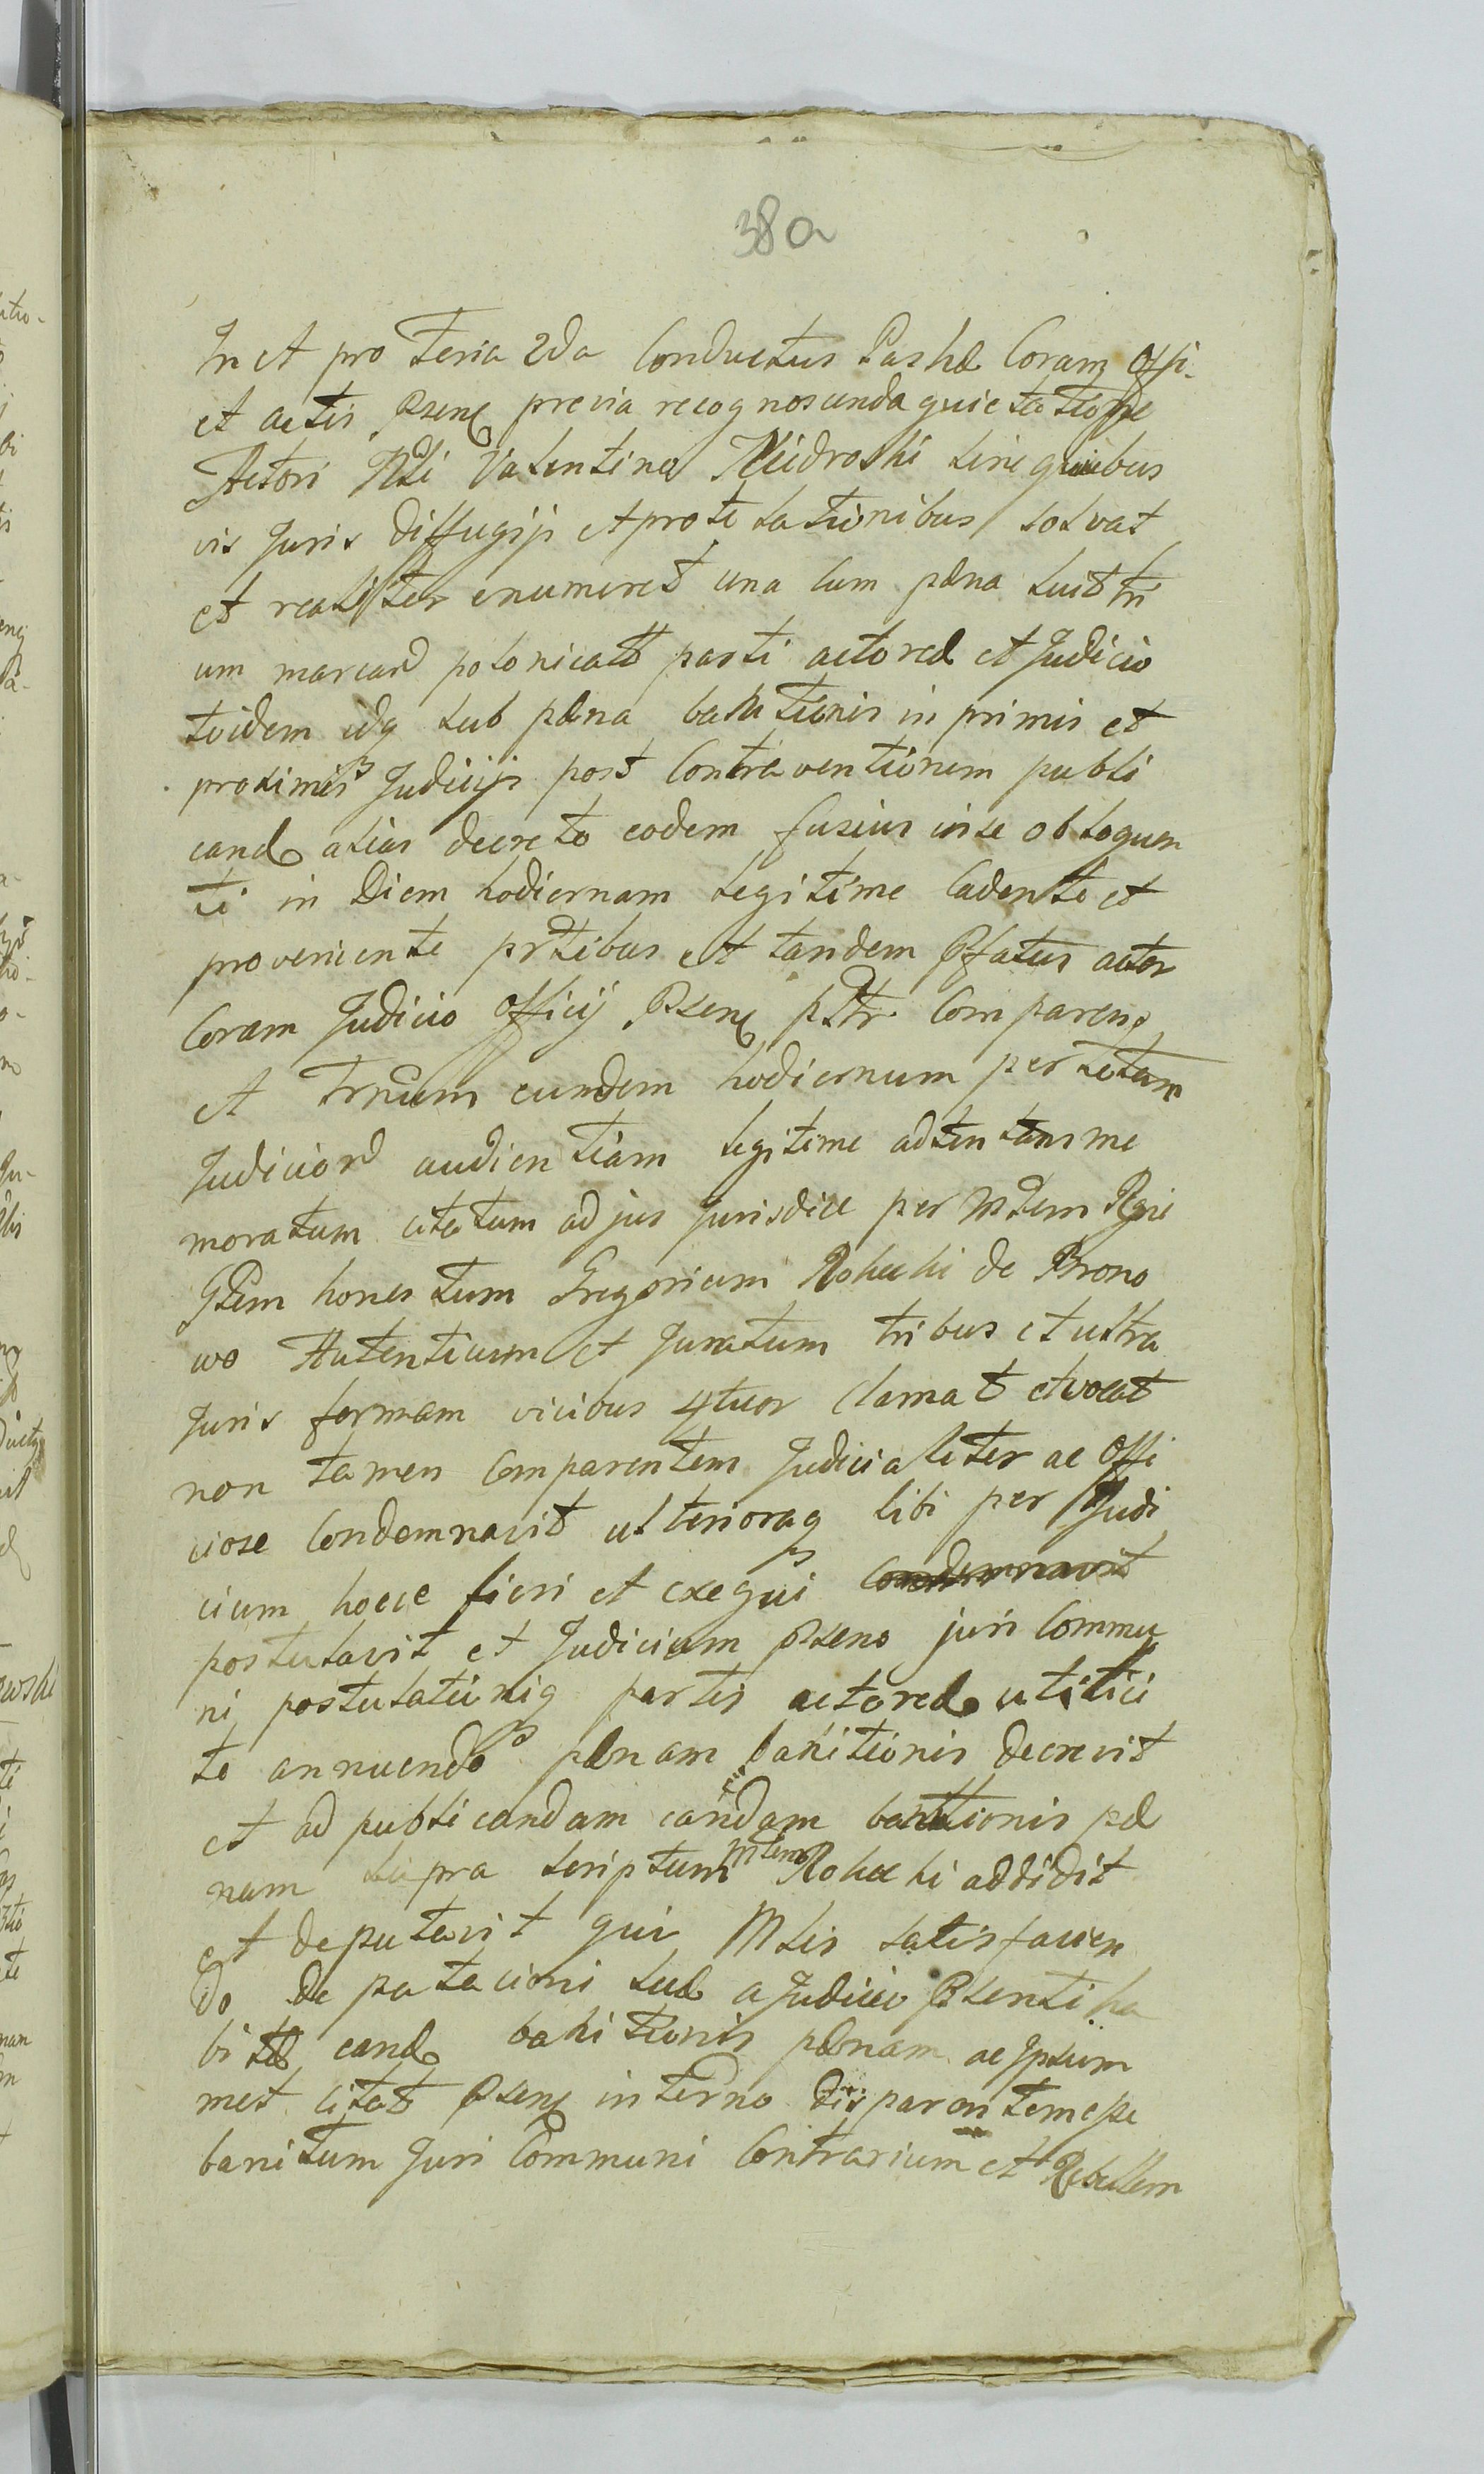 38a
In et pro Feria 2da Conductus Paschæ Coram Offi-
et actis Psenq previa recognoscenda quietatione
Actori Nli Valentino sine quibus
vis Juris diffugijs et protestationibus solvat
et realiter enumeret una cum pæna luit tri
um marcar polonicalt parti actoreæ et Judicio
toidem idq sub pæna banitionis in primis et
proximis Judicijs post Contraventionem publi
cand alias decreto eodem fusius in se obloquen
ti in Diem hodiernam legitime Cadente et
proveniente prtibus et tandem Pfatus actor
Coram Judicio Officij Psenq pltr Comparens
et Trnum eundem hodiernum per totam
Judicior audientiam legitime adtentans me
moratum citatum ad jus Jurisdice per Mtem Regni
Glem honestum Gregorium de Brono
wo Autenticum et Juratum tribus et ultra
Juris formam vicibus 4tuor Clamat et vocat
non tamen Comparentem Judicialiter ac Offi
ciose Condemnavit ulterioraq sibi per Judi
cium hocce fieri et exequi condemnavit
postulavit et Judicium Pseno juri Commu
ni postulationiq partis actoreæ uti lici
te annuendo pænam banitionis decrevit
et ad publicandam eandam banitionis pæ
nam supra scriptum Mtem addidit
et deputavit qui Mtlis satisfacien
do de putacioni suæ a Judicio Psenti ha
bitæ eand banitionis pænam ac Ipsum
met citat Psenq in terno disparentem e pe
banitum Juri Communi Contrarium et Rebellem